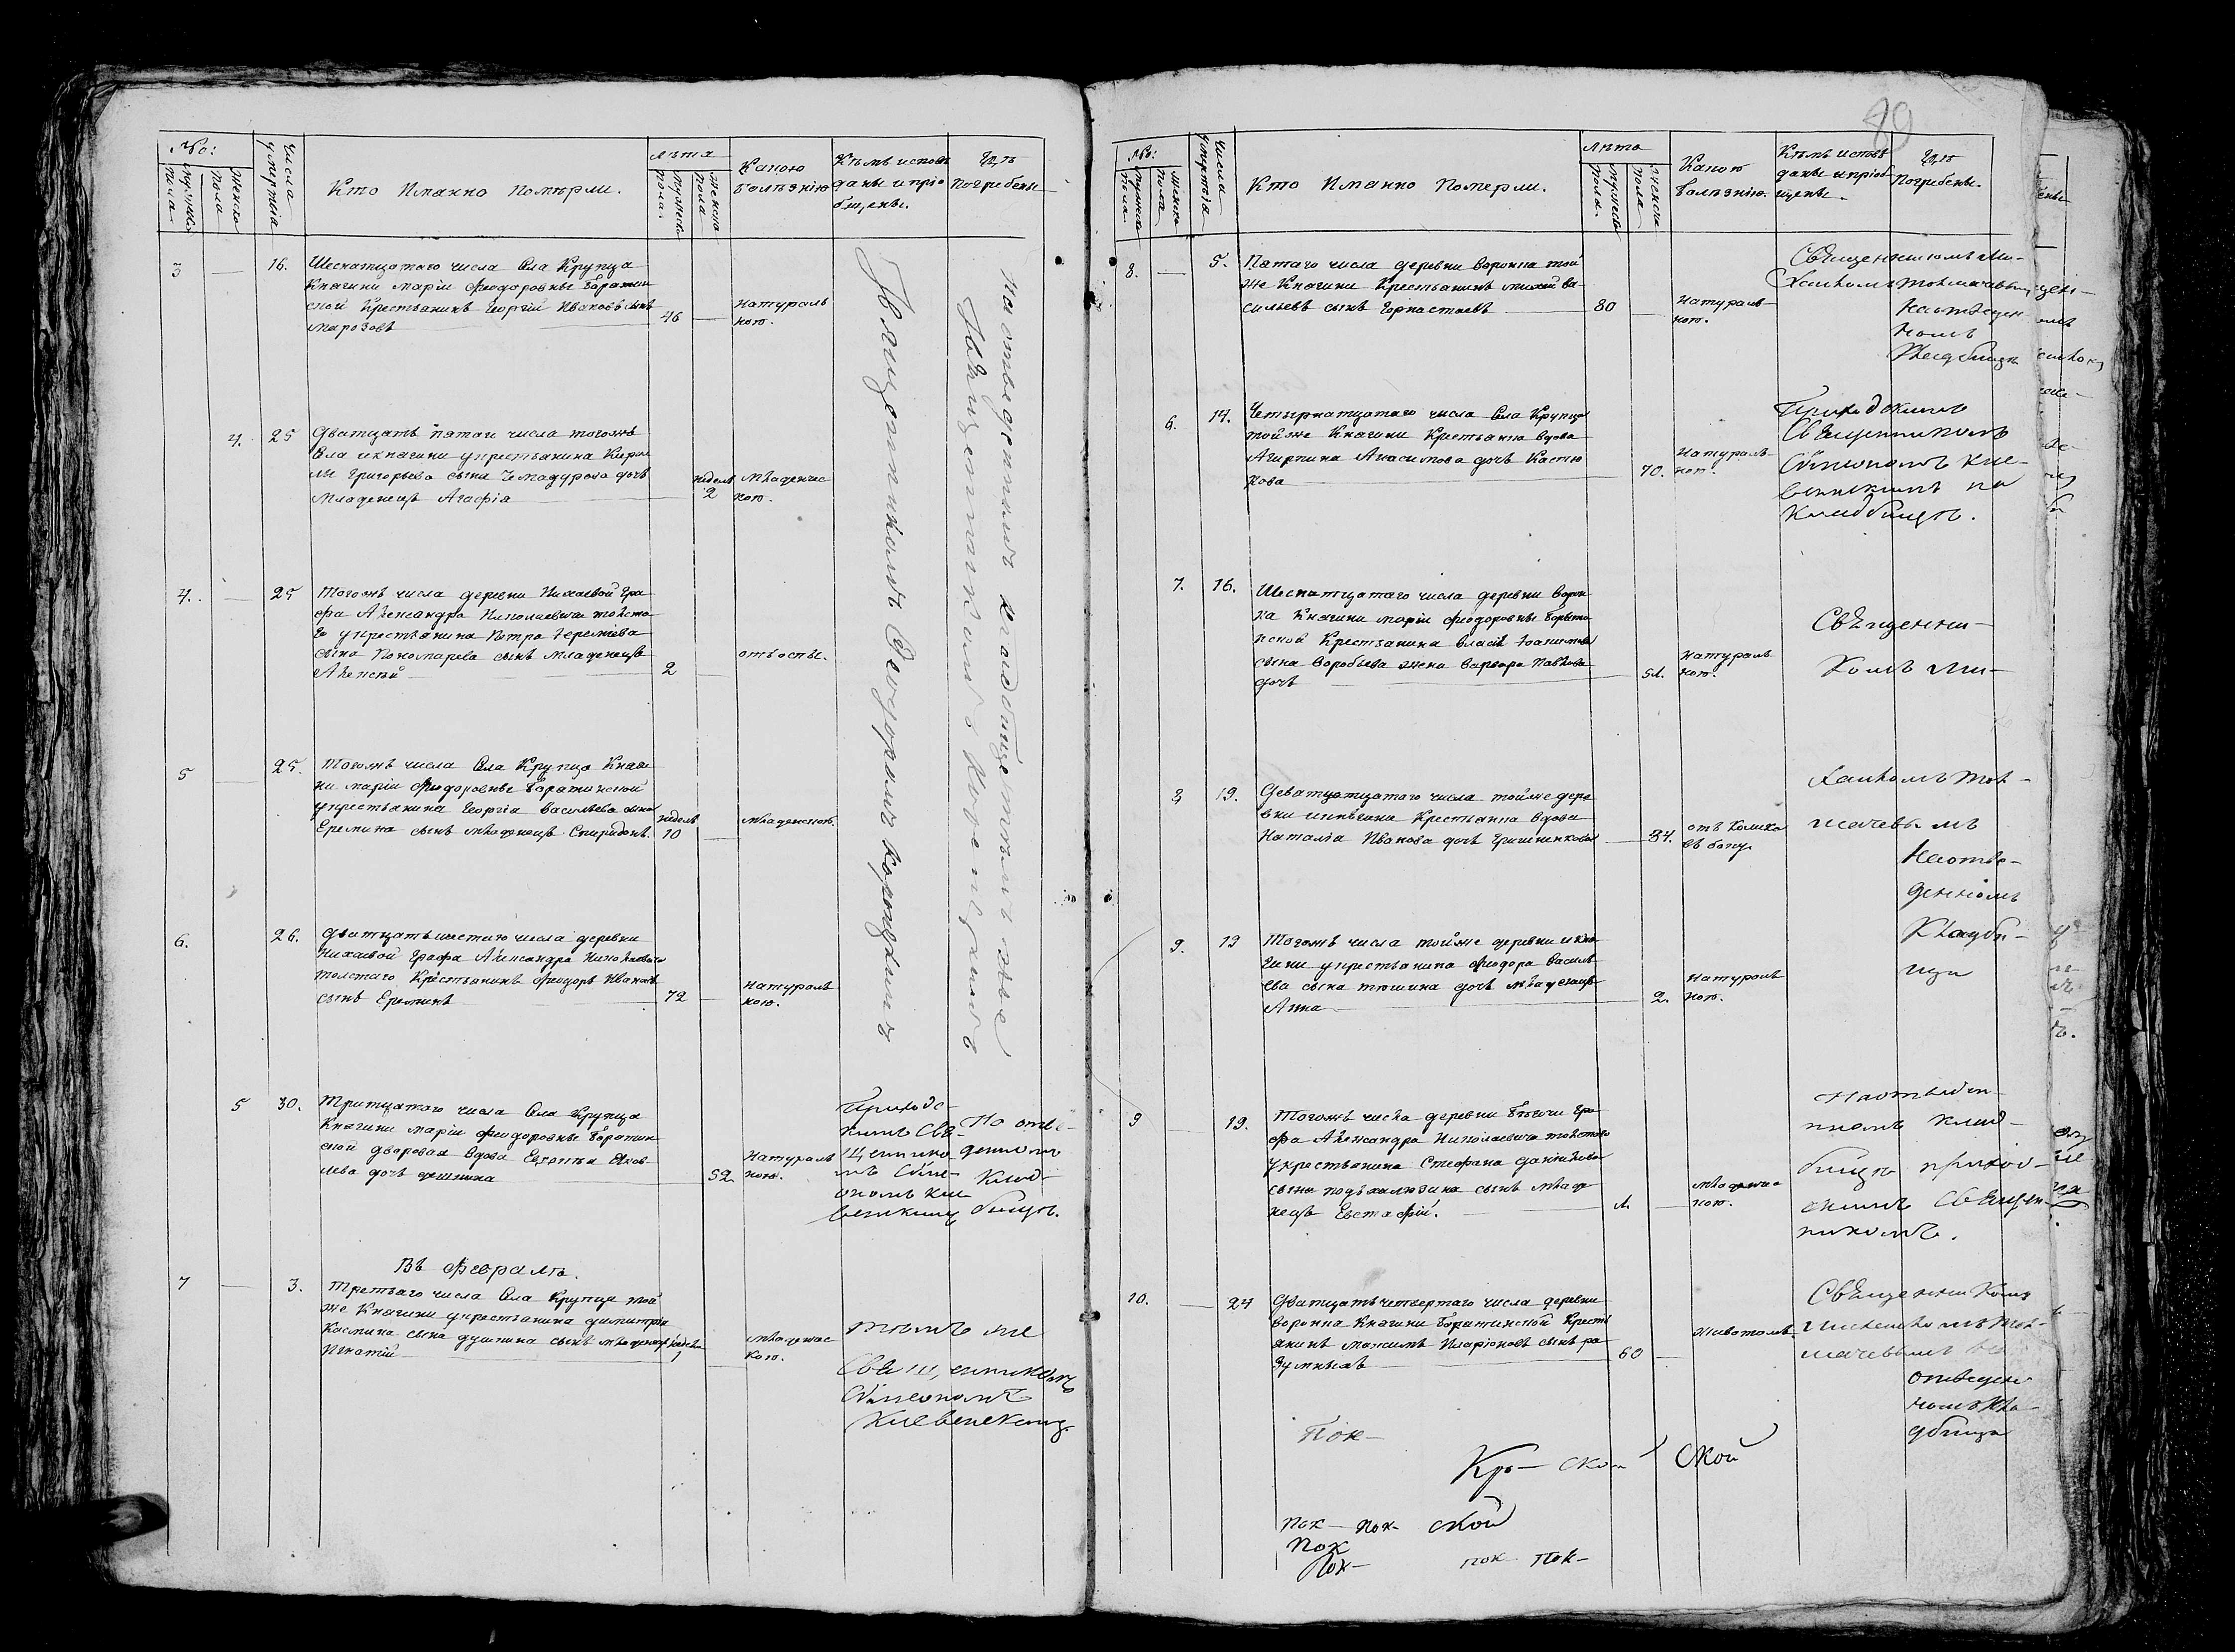 №:
мужеска пола
женска пола
Числа умертвiя
Кто Имянно Померли.
лѣта
мужеска пола
женска пола
Какою болѣзнiю
Кѣмъ исповѣданы и прiобщены.
Гдѣ погребены
3 — 16. Шеснатцатаго числа Села Крупца
Княгини марiи Феодоровны Баратин
ской Крестьянинъ Георгiй Ивановъ сынъ
Марозовъ 46 — натураль
ною.
4. 25 Дватцать пятаго числа тогожъ
Села и княгини у крестьянина Кирил
лы Григорьева сына Чемадурова дочь
Младенецъ Агафiя недель 2 младенчес
кою.
4. — 25 Тогожъ числа деревни Нихаевой гра
фа Александра Николаевича толста
го у крестьянина Петра
сына Пономарева сынъ младенецъ
Алексѣй 2 — отъ оспы.
5 — 25. Тогожъ числа Села Крупца Княги
ни марiи Феодоровны Баратинской
у крестьянина Георгiя Васильева сына
Еремина сынъ младенецъ Спиридонъ. недель 10 — младенскою.
6. 26. Дватцать шестаго числа деревни
Нихаевой Графа Александра Николаевича
толстаго Крестьянинъ Феодоръ Ивановъ
сынъ Ереминъ 72 — натураль
ною.
Священникомъ Феодоромъ
Священникомъ
на отведенномъ кладбище томъ же
5 30. Тритцатаго числа Села Крупца
Княгини марiи Феодоровны Баратин
ской дворовая вдова Яков
лева дочь 52 натураль
ною.
Приходс-
кимъ Свя-
щеннико
мъ Сѵме-
ономъ Кле
венскимъ
На отве-
денномъ
клад-
бищѣ.
Въ Февралѣ.
7 — 3. Третьяго числа Села Крупца той
же Княгини у крестьянина Димитрiя
Касмина сына Душкина сынъ младенецъ
Игнатiй 1 младенчес
кою.
темъ же
Священникомъ
Сѵмеономъ
Клевенскимъ
89
№:
мужеска пола
женска пола
Числа умертвiя
Кто Имянно Померли.
лѣта
мужеска пола
женска пола
Какою болѣзнiю.
Кѣмъ исповѣданы и прiобщены.
Гдѣ Погребены.
8. — 5. Пятаго числа деревни Воронка той
же Княгини Крестьянинъ михей Ва
сильевъ сынъ Горностаевъ 80 — натураль
ною.
Священникомъ Ми-
хаиломъ Толмачевымъ
На отведен
номъ
Кладбищи
6. 14. Четырнатцатаго числа Села Крупца
той же Княгини Крестьянка вдова
Агирпина Анасимова дочь Костю
кова 70. натураль
ною.
Приходскимъ
Священникомъ
Сѵмеономъ Кле-
венскимъ на
кладбищѣ.
7. 16. Шеснатцатаго числа деревни Ворон
ка Княгини марiи Феодоровны Борятин
ской Крестьянина Власа
сына Воробьева жена Варвара Павлова
дочь натураль
ною.
Священни-
комъ Ми-
8 19. Деватнатцатаго числа той же дере
вни и княгини Крестьянка вдова
Наталiя Иванова дочь Гришинкова 84. отъ Колика
въ боку
хаиломъ Тол-
мачевымъ
На отве-
денномъ
Кладби-
щи
9. 19 Тогожъ числа той же деревни и кня
гини у крестьянина Феодора Василь
ева сына Тюшина дочь младенецъ
Анна 2. натураль
ною.
9 19. Тогожъ числа деревни гра
фа Александра Николаевича толстаго
у крестьянина Стефана Данилова
сына сынъ младе
нецъ Евстафiй. младенчес
кою.
На отведен-
номъ клад-
бищѣ приход-
скимъ Священ-
никомъ.
10. — 24 Дватцать четвертаго числа деревни
Воронка Княгини Баратинской Кресть
янинъ Максимъ Иларiоновъ сынъ Ра
зумнѣвъ 60 — животомъ
Священникомъ
Михаиломъ Тол-
мачевымъ На
отведен-
номъ Кла-
дбищи
Пок—
Кр— ской ской
Пок— Пок— ской
Пок
Пок— пок Пок—